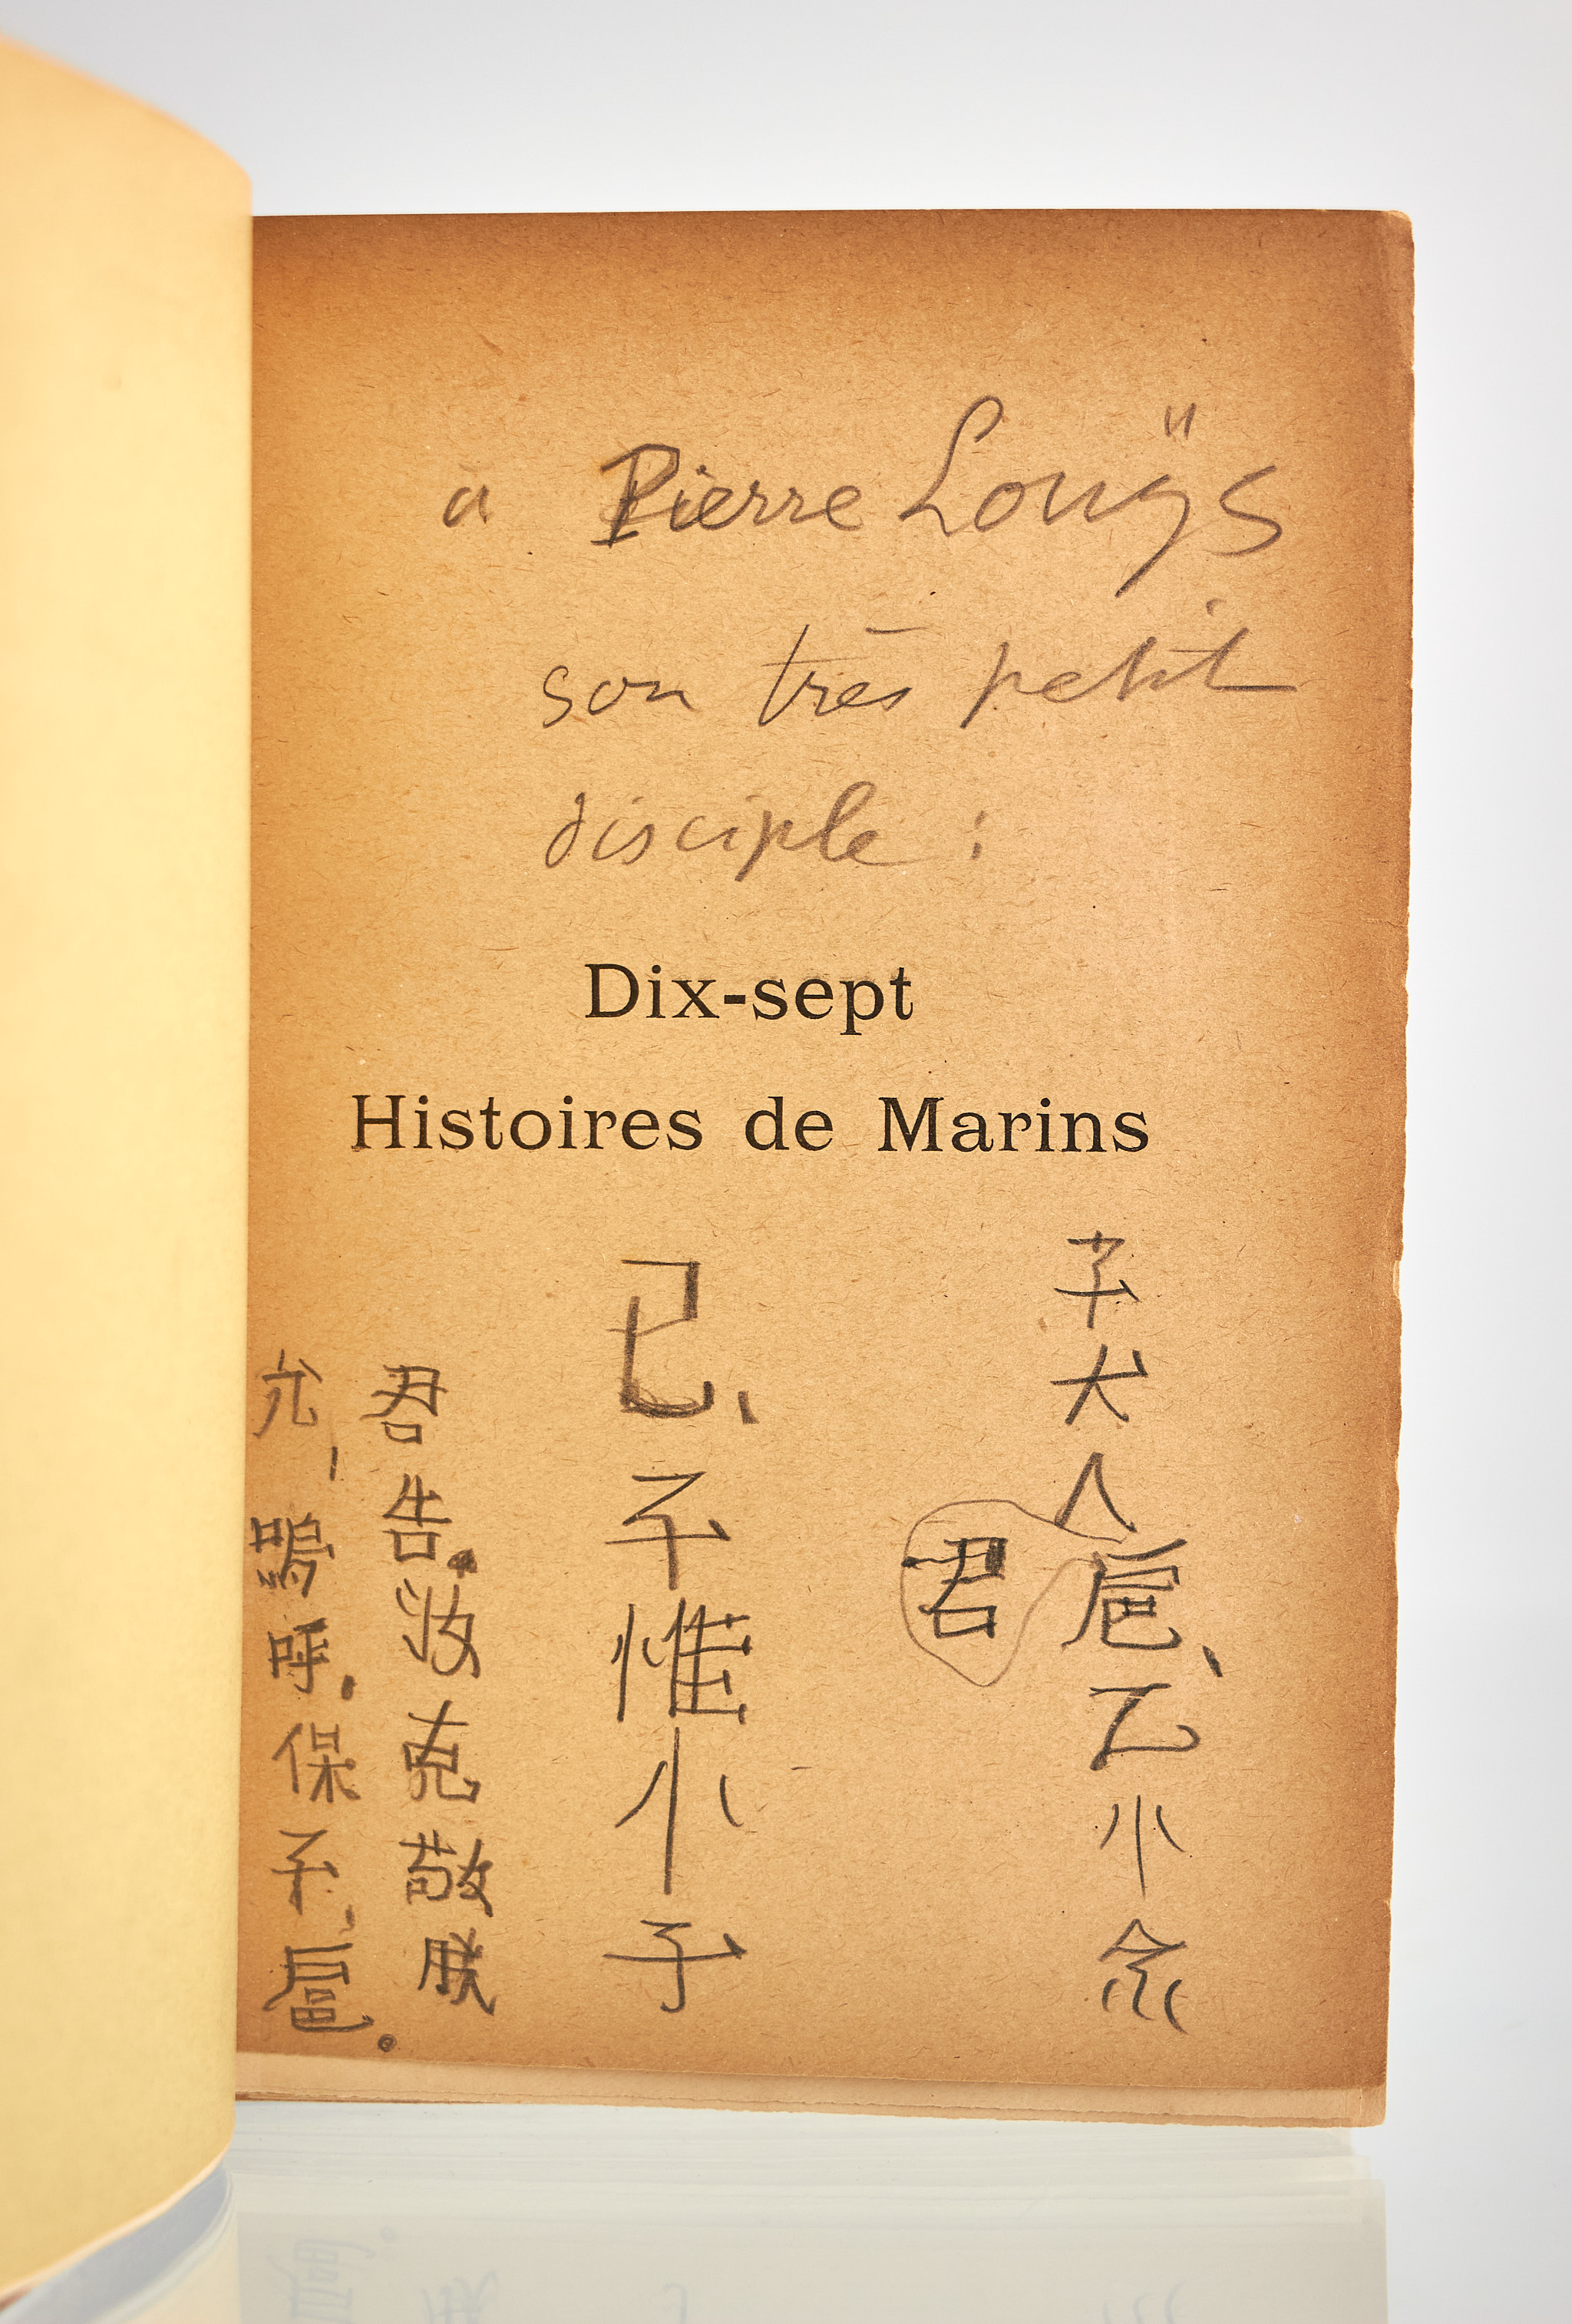 a Pierre Louÿs
son très petit
disciple :
Dix-sept
Histoires de Marins
子犬人君扈、乙小念
已、子惟小子
君告.汝克敬朕
允、嗚呼.保子、扈。